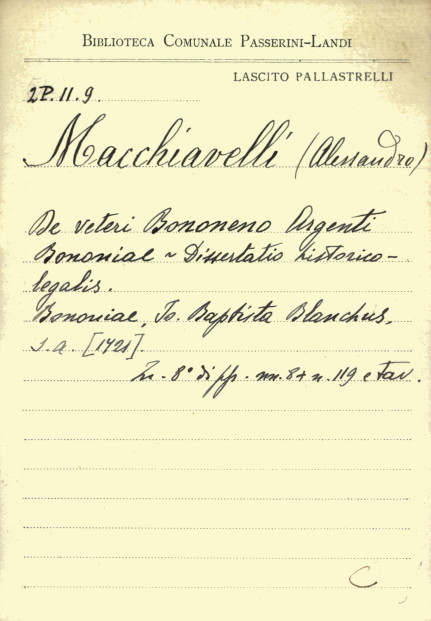 BIBLIOTECA COMUNALE PASSERINI-LANDI
LASCITO PALLASTRELLI
2P.11.9.
Macchiavelli (Alessandro)
De veteri Bononeno Argenti
Bononiae ~ Dissertatio historico-
legalis.
Bononiae, Jo. Baptista Blanchus,
s.a. [1721].
In - 8° di pp. nn. 8 + n. 119 e tav.
C